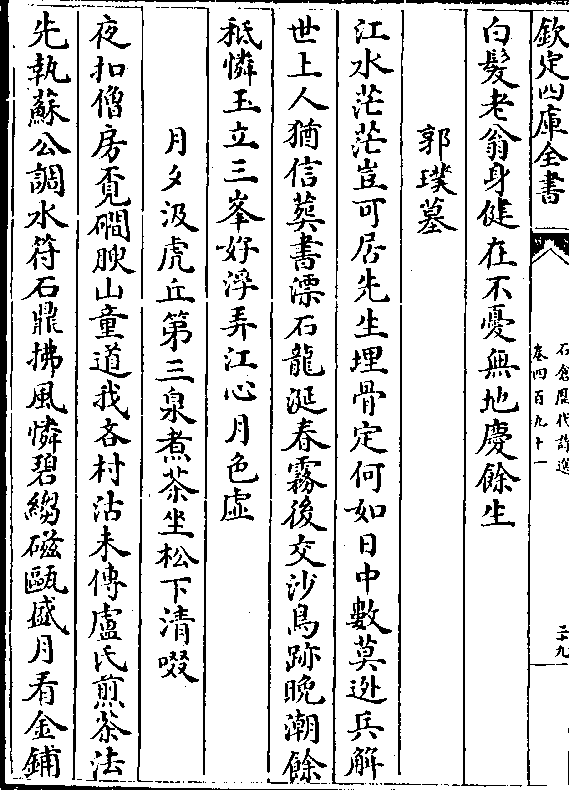 欽定四庫全書
石倉歷代詩選
卷四百九十一
白髮老翁身健在不憂無地慶餘生
郭璞墓
江水茫茫豈可居先生埋骨定何如日中數莫迯兵解
世上人猶信葬書漂石龍涎春霧後交沙鳥跡晚潮餘
秪憐玉立三峯好浮弄江心月色虛
月夕汲虎丘第三泉煮茶坐松下清啜
夜扣僧房覔磵腴山童道我吝村沽未傳盧氏煎茶法
先執蘇公調水符石鼎拂風憐碧縐磁甌盛月看金鋪